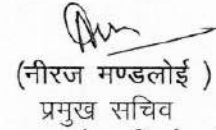 (नीरज मण्डलोई )
प्रमुख सचिव